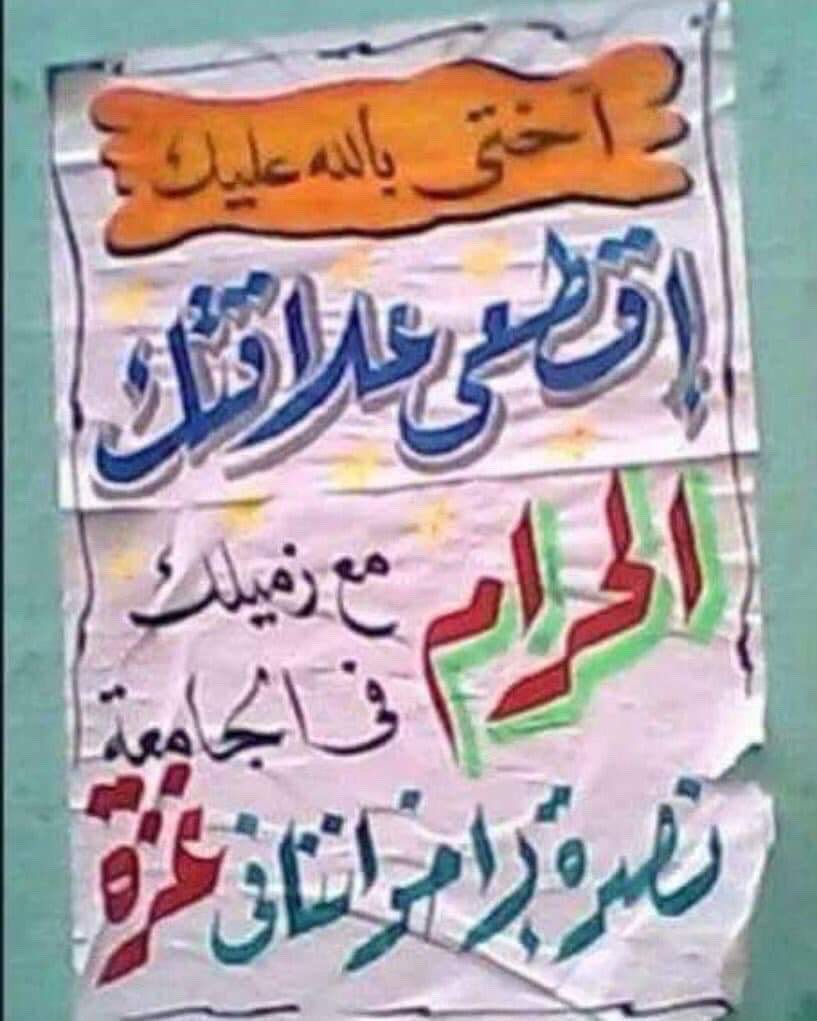 أختى بالله عليك
إقطعى علاقتك
الحرام مع زميلك
فى الجامعة
نصرة لإخواننا فى غزة